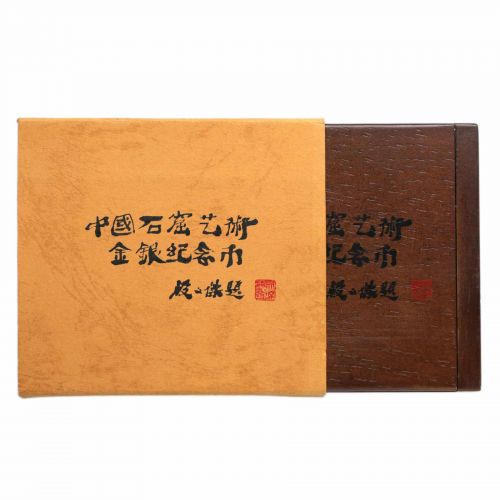 中國石窟艺術
金銀纪念币
段文傑題
艺術
纪念币
段文傑題